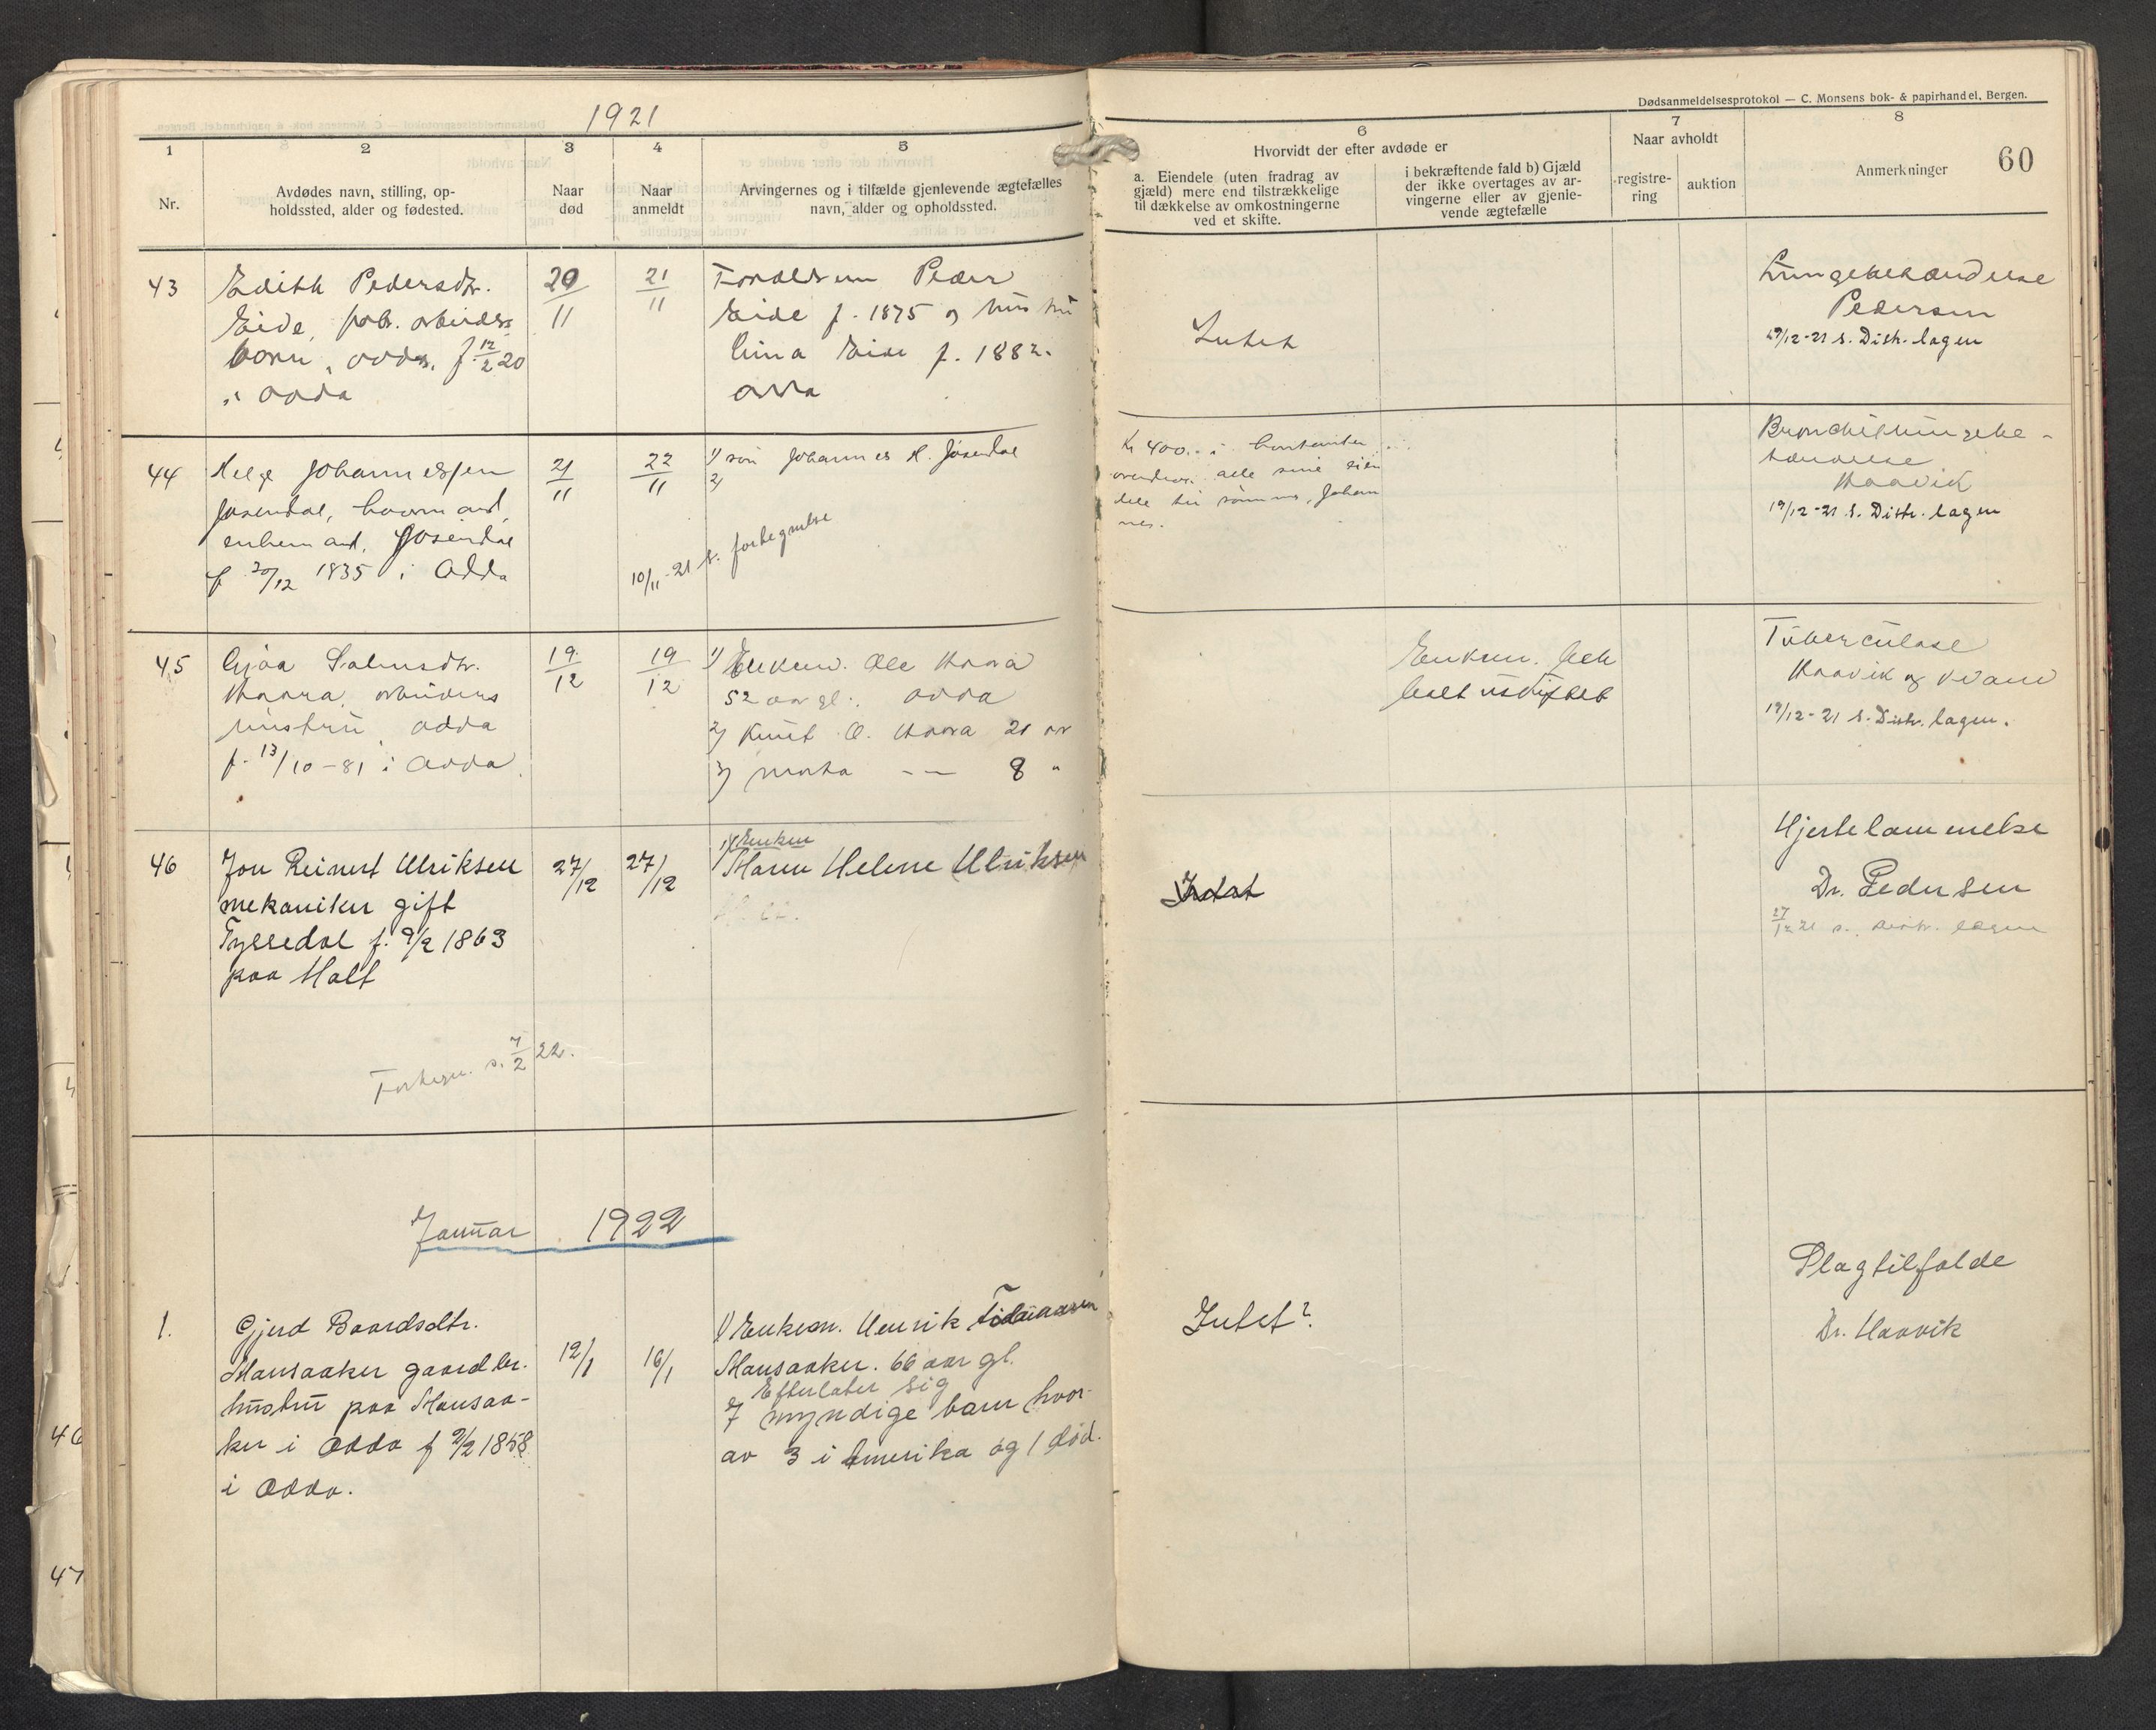 1921
Dødsanmeldelsesprotokol — C. Monsens bok- & papirhandel, Bergen.
60
1
Nr.
2
Avdødes navn, stilling, op-
holdssted, alder og fødested.
3
Naar
død
4
Naar
anmeldt
5
Arvingernes og i tilfælde gjenlevende ægtefælles
navn, alder og opholdssted.
6
Hvorvidt der efter avdøde er
a. Eiendele (uten fradrag av
gjæld) mere end tilstrækkelige
til dækkelse av omkostningerne
ved et skifte.
i bekræftende fald b) Gjæld
der ikke overtages av ar-
vingerne eller av gjenle-
vende ægtefælle
7
Naar avholdt
registre-
ring
auktion
8
Anmerkninger
43
Edith Pedersdtr.
Eide, fabr. arbeiders
barn, Odda, f. 12/2 20
i Odda
20/11
21/11
Forældrene Peder
Eide f. 1875 og hustru
Eide f. 1882.
Odda
Intet
Lungebetændelse
Pedersen
19/12-21 s. Distr. lægen
44
Helge Johannessen
Jøsendal, kaarmand,
enkemand, Jøsendal
f. 20/12 1835 i Odda
21/11
22/11
1) søn Johannes H. Jøsendal
2)
10/11-21 s. fortegnelse
Kr 400,- i kontanter
overdrog alle sine eien
dele til sønnen, Johan
nes.
Bronchit lungebe-
tændelse
Haavik
19/12-21 s. Distr. lægen
45
Gjøa Salmsdtr.
arbeiders
hustru, Odda
f. 13/10-81 i Odda.
19/12
19/12
1) Enkem. Ole
52 aar gl. Odda
2) Knut O. 21 år
3) Marta — — 8 "
Enkem. helt
Tuberculose
Haavik og
19/12-21 s. Distr. lægen.
46
Jon Reinert Ulriksen
mekaniker gift
Tyssedal f. 9/2 1863
paa Holt
27/12
27/12
1) Enken
Maren Helene Ulriksen
Fortegn. s. 7/2 22.
Intet
Hjertelammelse
Dr. Pedersen
27/12 21 s. Distr. lægen
Januar 1922
1.
Gjerd Baardsdtr.
Mansaaker gaardbr.
hustru paa Mansaa-
ker i Odda f 9/2 1858
i Odda.
12/1
16/1
1) Enkem. Henrik
Mansaaker. 66 aar gl.
Efterlater sig
7 myndige barn hvor-
av 3 i Amerika og 1 død.
Intet?
Slagtilfælde
Dr. Haavik
46
47